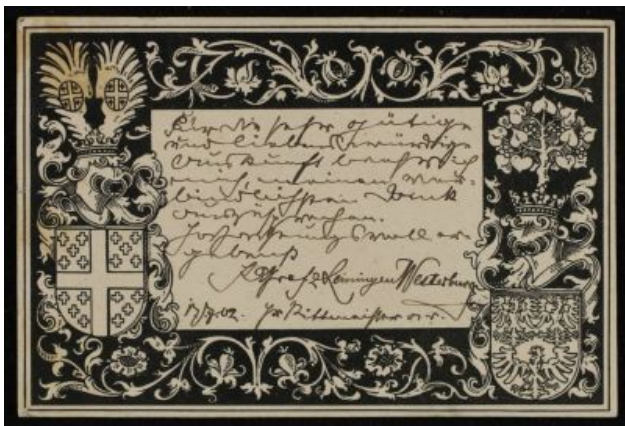 Für die sehr gütige
und liebenswürdige
Auskunft beehre ich
mich meinen ver-
bindlichsten Dank
auszusprechen.
Hochachtungsvoll er-
gebenst
KEGraf z. Leiningen Westerburg
Rittmeister a. D.